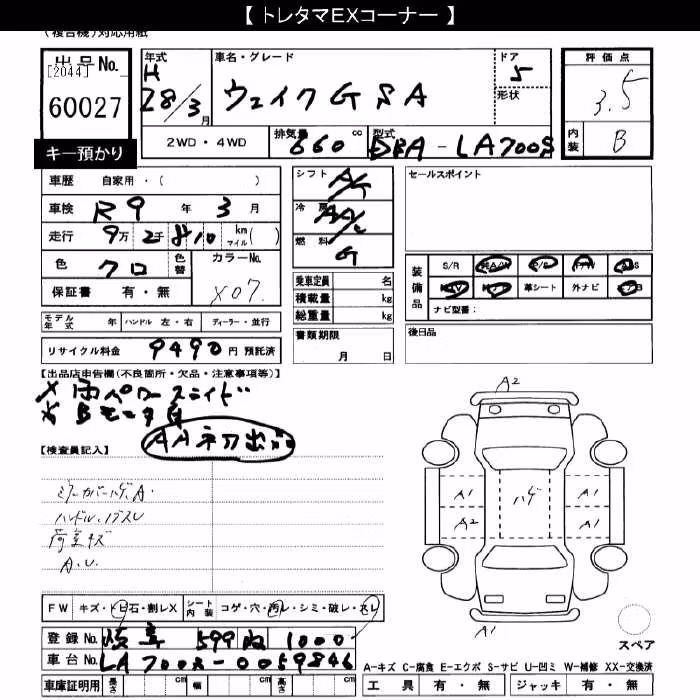 【 トレタマEXコーナー 】
(複合機)対応用紙
出品No.
[2044]
60027
キー預かり
年式
H
28/3月
車名・グレード
ウェイク G SA
ドア
5
形状
2WD・4WD
排気量
660 cc
型式
DBA-LA700S
評価点
3.5
内装
B
車歴 自家用・( )
車検 R9 年 3 月
走行 9万 2千 810 km マイル( )
色 クロ 色替 カラーNo. X07
保証書 有・無
モデル年式 年 ハンドル 左・右 ディーラー・並行
リサイクル料金 9490 円 預託済
シフト AT
冷房 AAC
燃料 G
乗車定員 名
積載量 kg
総重量 kg
書類期限
月 日
セールスポイント
装備品
S/R 純A/W P/S P/W ABS
純TV 純ナビ 革シート 外ナビ エアB
ナビ型番:
後日品
【出品店申告欄(不良箇所・欠品・注意事項等)】
※両パワースライド
※Bモニタ有
AA初出品
【検査員記入】
ミラーカバーハゲ、A.
ハンドル、ノブスレ
荷室キズ
A.U.
A2
A1
A2
ハゲ
A1
A1
A1
スペア
FW キズ・トビ石・割レX シート内装 コゲ・穴・汚レ・シミ・破レ・スレ
登録No. 岐阜 599 ぬ 1000
車台No. LA700S-0059846
車庫証明用 長さ cm 幅 cm 高さ cm
A-キズ C-腐食 E-エクボ S-サビ U-凹ミ W-補修 XX-交換済
工具 有・無 ジャッキ 有・無